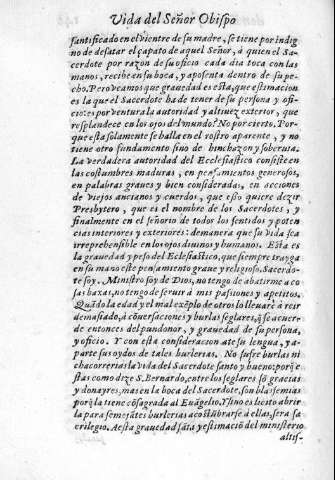 Vida del Señor Obispo
santificado en el vientre de su madre, se tiene por indig
no de desatar el çapato de aquel Señor, à quien el Sa-
cerdote por razon de su oficio cada dia toca con las
manos, recibe en su boca, y aposenta dentro de su pe-
cho. Pero veamos que grauedad es esta, que estimacion
es la que el Sacerdote ha de tener de su persona y ofi-
cio: es por ventura la autoridad y altiuez exterior, que
resplandece en los ojos del mundo? No por cierto. Por-
que esta solamente se halla en el rostro aparente, y no
tiene otro fundamento sino de hinchazon y soberuia.
La verdadera autoridad del Ecclesiastico consiste en
las costumbres maduras, en pensamientos generosos,
en palabras graues y bien consideradas, en acciones
de viejos ancianos y cuerdos, que esto quiere dezir
Presbytero, que es el nombre de los Sacerdotes; y
finalmente en el señorio de todos los sentidos y poten
cias interiores y exteriores: demanera que su vida sea
irreprehensible en los ojos diuinos y humanos. Esta es
la grauedad y peso del Ecclesiastico, que siempre trayga
en su mano este pensamiento graue y religioso. Sacerdo-
te soy. Ministro soy de Dios, no tengo de abatirme a co
sas baxas, no tengo de seruir à mis passiones y apetitos.
Quãdo la edad y el mal exẽplo de otros lo lleuarẽ à reir
demasiado, à cõuersaciones y burlas seglares, q̃ se acuer
de entonces del pundonor, y grauedad de su persona,
y oficio. Y con esta consideracion ate su lengua, y a-
parte sus oydos de tales burlerias. No sufre burlas ni
chacorrerias la vida del Sacerdote santo y bueno: porq̃ e
stas como dize S. Bernardo, entre los seglares sõ gracias
y donayres, mas en la boca del Sacerdote, son blasfemias
porq̃ la tiene cõsagrada al Euãgelio. Y sino es licito abrir
la para semejãtes burlerias acostũbrarse à ellas, sera sa
crilegio. A esta grauedad sãta y estimaciõ del ministerio
altis-